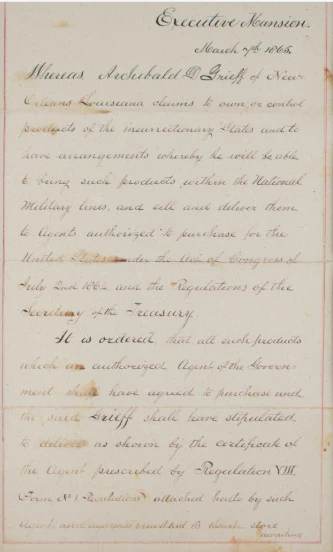 Executive Mansion.
March 7th 1865.
Whereas, Archibald W Grieff of New
Orleans Louisiana claims to own or control
products of the insurrectionary States and to
have arrangements whereby he will be able
to bring such products within the National
Military lines, and sell and deliver them
to Agents authorized to purchase for the
United States under the Act of Congress of
July 2nd 1864 and the Regulations of the
Secretary of the Treasury.
It is ordered, that all such products
which an authorized Agent of the Govern-
ment shall have agreed to purchase and
the said Grieff shall have stipulated
to deliver as shown by the certificate of
the Agent prescribed by Regulation VIII,
Form No 1. attached hereto by such
agent and